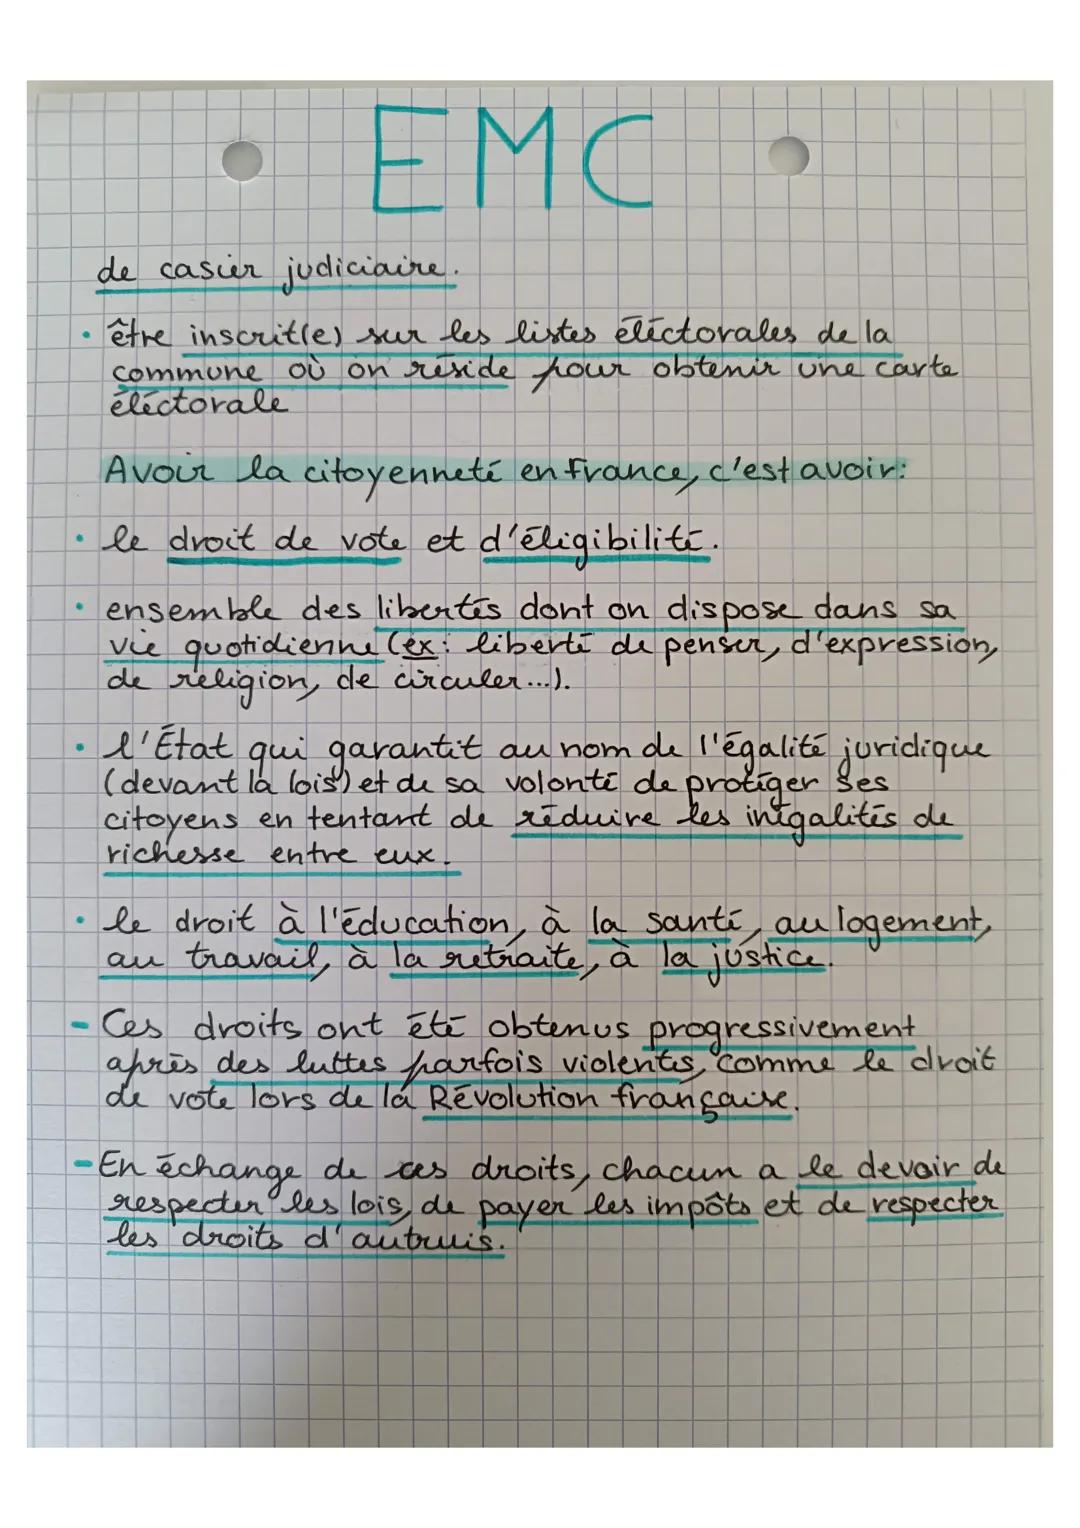 EMC
de casier judiciaire.
• être inscrit(e) sur les listes éléctorales de la
commune où on réside pour obtenir une carte
éléctorale
Avoir la citoyenneté en France, c'est avoir:
• le droit de vote et d'éligibilité.
• ensemble des libertés dont on dispose dans sa
vie quotidienne (ex: liberté de penser, d'expression,
de religion, de circuler...).
• l'État qui garantit au nom de l'égalité juridique
(devant la lois) et de sa volonté de protéger ses
citoyens en tentant de réduire les inégalités de
richesse entre eux.
• le droit à l'éducation, à la santé, au logement,
au travail, à la retraite, à la justice.
- Ces droits ont été obtenus progressivement
après des luttes parfois violentes, comme le droit
de vote lors de la Révolution française.
- En échange de ces droits, chacun a le devoir de
respecter les lois, de payer les impôts et de respecter
les droits d'autruis.